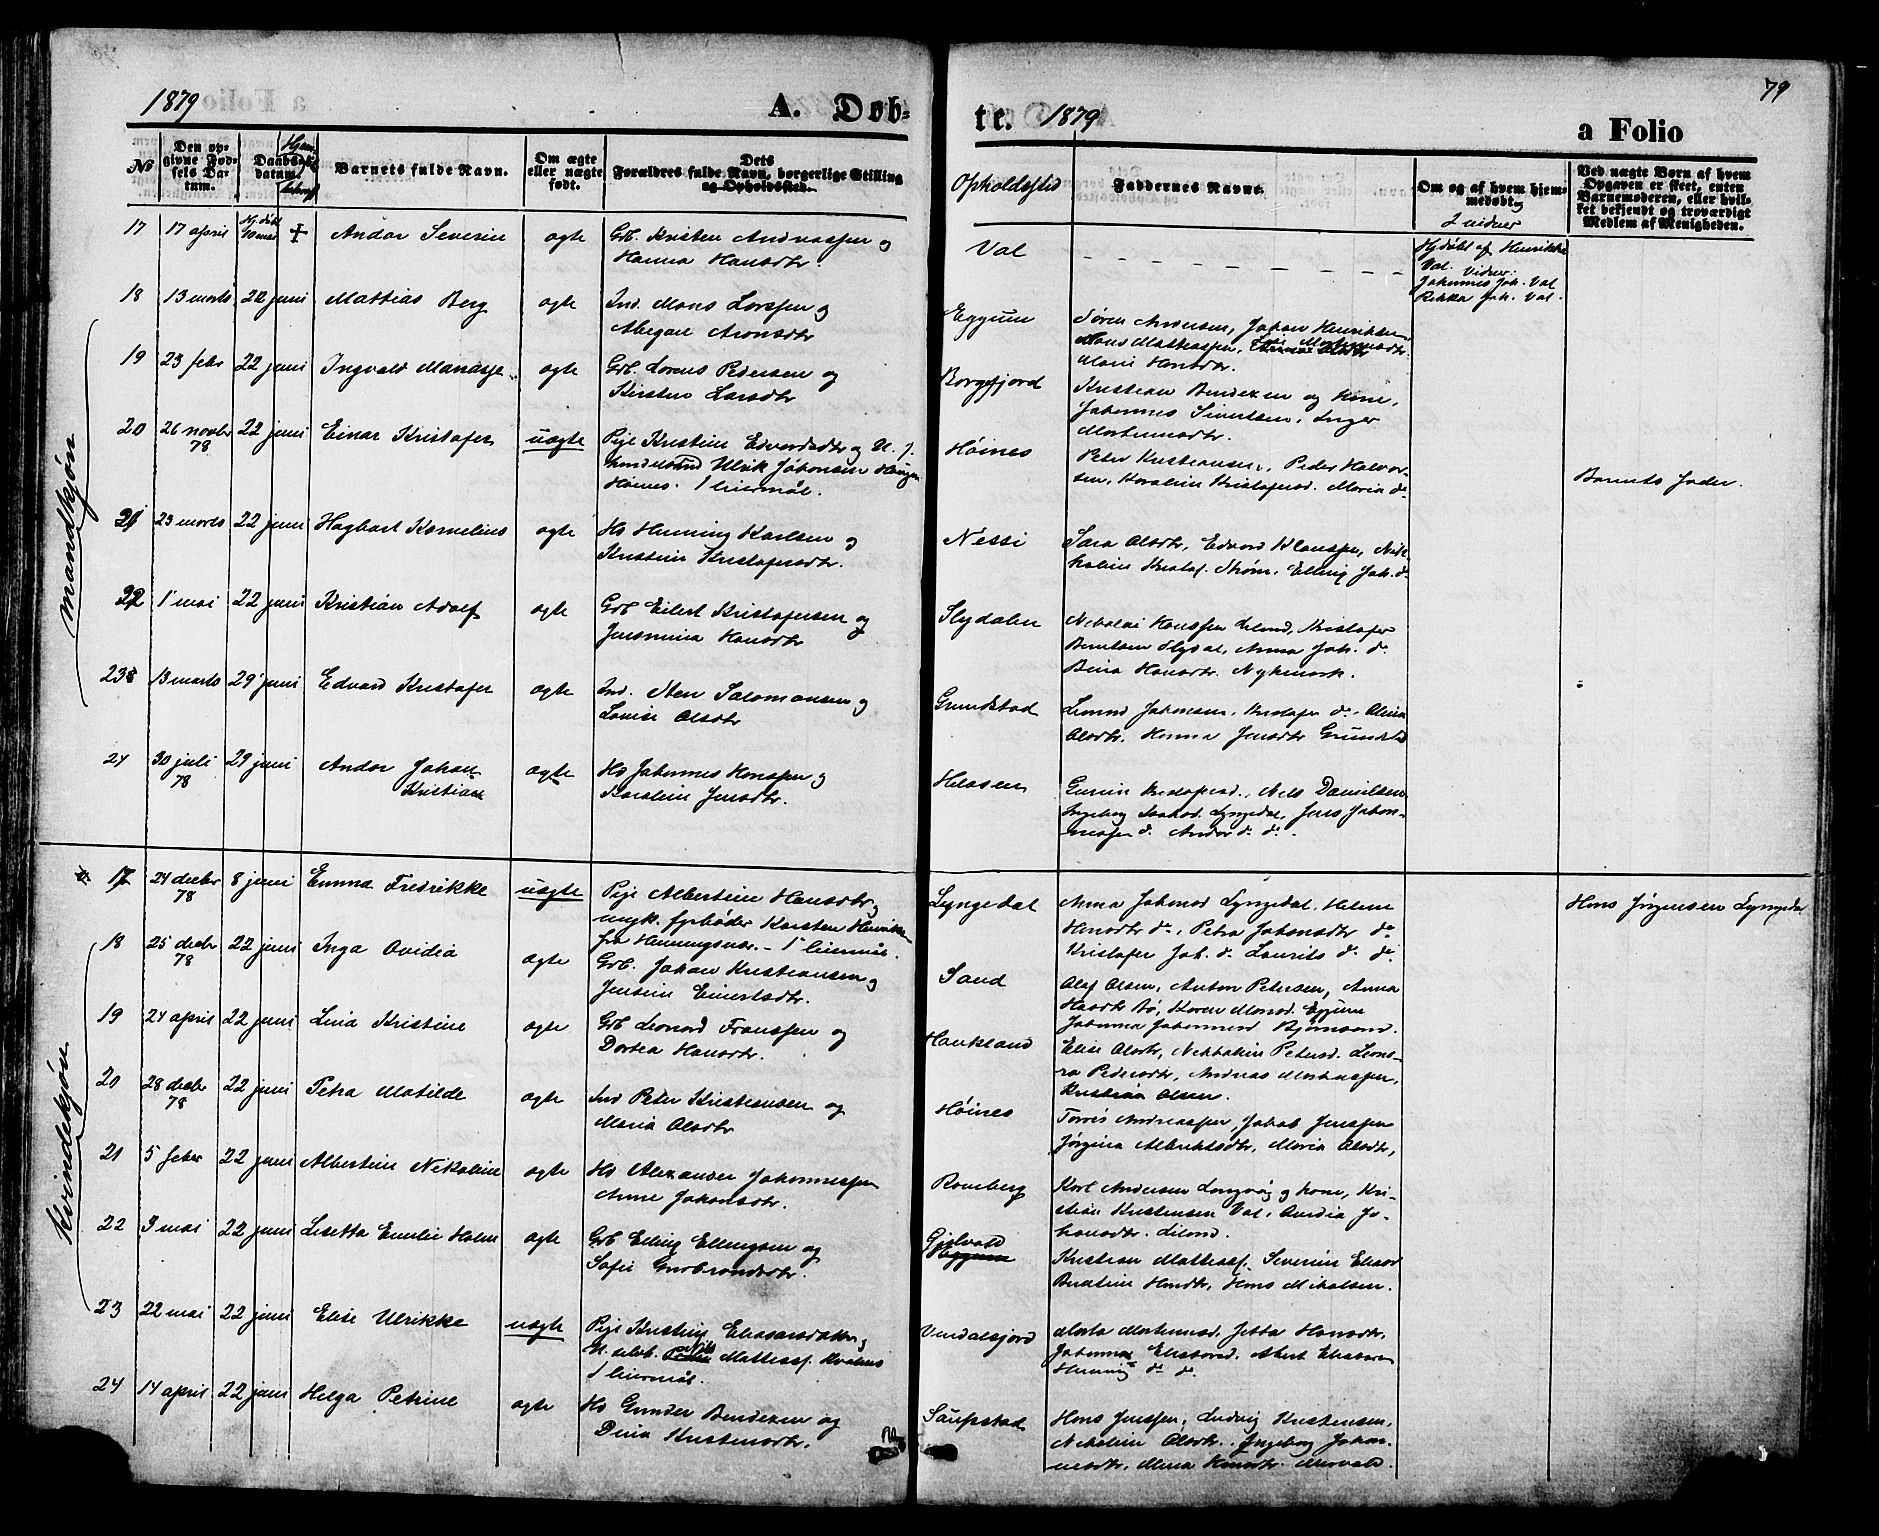 1879
A. Døb=
te. 1879
a Folio
79
No
Den op-
givne Fød-
sels Da-
tum.
Daabs-
datum.
Barnets fulde Navn.
Om ægte
eller uægte
født.
Dets
Forældres fulde Navn, borgerlige Stilling
og Opholdssted.
Opholdssted
Faddernes Navne.
Om og af hvem hjem-
medøbt og
2 vidner
Ved uægte Børn af hvem
Opgaven er skeet, enten
Barnemoderen, eller hvil-
ket bekjendt og troværdigt
Medlem af Menigheden.
mandkjøn
17 17 april Hj.døbt 10 mai + Andor Severin ægte Grb. Kristen Andreassen og
Hanna Hansdtr.
Val
Hj.døbt af Henrikke
Val. Vidner:
Johannes Joh. Val
Rikka Joh. Val.
18 13 marts 22 juni Mattias Berg ægte Ind. Mons Larssen og
Abigael Aronsdtr
Eggum
Søren Andersen, Johan Henriksen
Hans Mathiassen,
Marie Hansdtr.
19 23 febr 22 juni Ingvald Manasse ægte Grb. Lorens Pedersen og
Kirsten Larsdtr
Borgfjord
Kristian Bendixen og kone,
Johannes Sivertsen, Inger
Mortensdtr.
20 26 novbr 78 22 juni Einar Kristofer uægte Pige Kristine Edvardsdtr og U. f.
Ulrik Johansen
Høines. 1 leiermål.
Høines
Peter Kristiansen, Peder Halvor-
sen, Karoline Kristofersd. Maria do
Barnets fader.
21 23 marts 22 juni Hagbart Kornelius ægte Hs Henning Karlsen og
Kristine Kristofersdtr.
Nessi
Sara Olsdtr, Edvard Klaussen, Nik-
holine Kristof. Strøm, Elling Joh. do
22 1 mai 22 juni Kristian Adolf ægte Grb Eilert Kristofersen og
Jensmina Hansdtr
Slydalen
Nikolai Hanssen Lilend, Kristofer
Berntsen Slydal, Anna Joh. do
Bina Hansdtr. Nykmark.
23 13 marts 29 juni Edvard Kristofer ægte Ind. Sten Salomonsen og
Lovise Olsdtr
Grundstad
Leonard Johansen, Kristofer do. Olina
Olsdtr. Hanna Jensdtr Grundstd
24 30 juli 78 29 juni Andor Johan
Kristian
ægte Hs Johannes Hanssen og
Karoline Jensdtr.
Helosen
Gurine Kristofersd., Nils Danielsen
Ingeborg Isaksd. Lyngedal, Jens Johan-
nessen do. Andor do. do.
Kvindekjøn
17 24 decbr 78 8 juni Emma Fredrikke uægte Pige Albertine Hansdtr og
ungk. fyrbøder Karsten Henriksen
fra Henningsvær. - 1 leiermål.
Lyngedal
Anna Johansd Lyngedal. Helene
Hansdtr do., Petra Johansdtr do
Kristofer Joh. do. Laurits do. do.
Hans Jørgensen Lyngedal
18 25 decbr 78 22 juni Inga Ovidia ægte Grb. Johan Kristiansen og
Jensine Einertsdtr.
Sand
Olaf Olsen, Anton Petersen, Anna
Hansdtr Bø, Karen Monsd. Eggum
Johanna Johannesd Bjørnsand.
19 24 april 22 juni Lina Kristine ægte Grb Leonard Franssen og
Dortea Hansdtr.
Haukland
Elise Olsdtr, Nikkoline Petersd. Leono-
ra Pedersdtr, Andreas Mortenssen,
Kristian Olsen.
20 28 decbr 78 22 juni Petra Matilde ægte Ind Peter Kristiansen og
Maria Olsdtr
Høines
Torris Andreassen, Jakob Jenssen
Jørgina Albriktsdtr, Maria Olsdtr,
21 5 febr 22 juni Albertine Nikoline ægte Hs Alexander Johannessen
Anne Johansdtr.
Roneberg
Karl Andersen Longvåg og kone, Kri-
stian Kristensen Val, Ovedia Jo-
hansdtr. Lilend.
22 3 mai 22 juni Lisetta Emilie Holm ægte Grb Elling Ellingsen og
Sofie Gudbrandsdtr.
Gjelvold
Eggum
Kristian Mattiass. Severine Eliasd
Beratine Hansdtr, Hans Mikalsen.
23 22 mai 22 juni Elise Ulrikke uægte Pige Kristine Eliasarsdatter og
Nils Mattiass. Kvalnes
1 leiermål.
Vendalsjord
Marta Mortensd. Jetta Hansdtr,
Johanna Eliasarsd. Albert Eliasarsen
Henning do. do.
24 14 april 22 juni Helga Petrine ægte Hs Gunder Bendixen og
Dina Kristensdtr.
Saupstad
Hans Jenssen, Ludvig Kristensen,
Nikoline Olsdtr. Ingeborg Johan-
nesdtr, Mina Hansdtr.